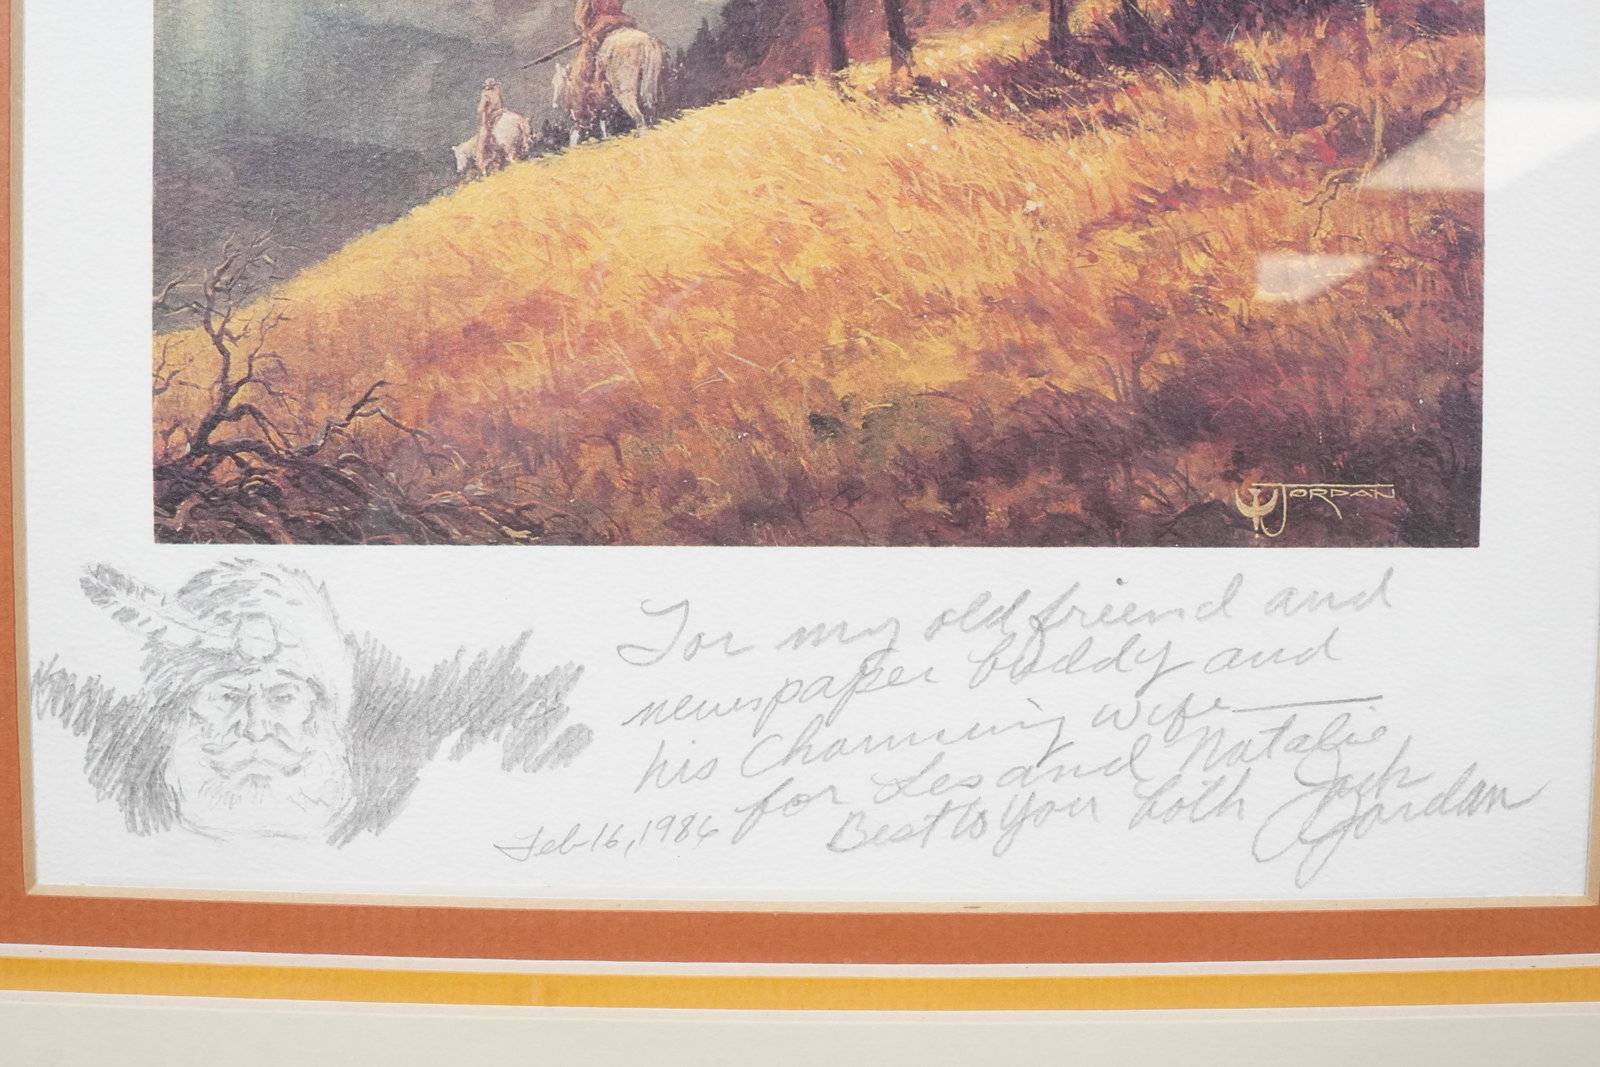 JORDAN
For my old friend and
newspaper buddy and
his Charming wife —
for Les and Natalie
Best to you both Jack Jordan
Feb 16, 1986